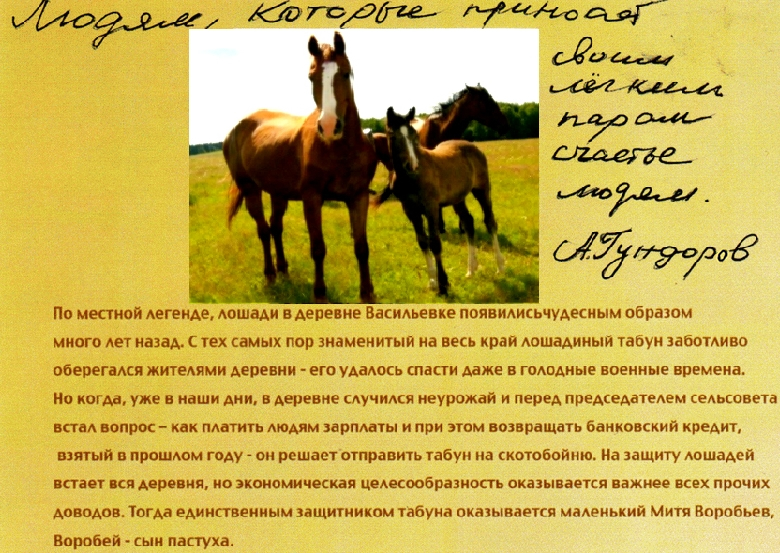 Людям, которые приносат
своим
лёгким
паром
счастье
людям.
А.Гундоров
По местной легенде, лошади в деревне Васильевке появилисьчудесным образом
много лет назад. С тех самых пор знаменитый на весь край лошадиный табун заботливо
оберегался жителями деревни - его удалось спасти даже в голодные военные времена.
Но когда, уже в наши дни, в деревне случился неурожай и перед председателем сельсовета
встал вопрос – как платить людям зарплаты и при этом возвращать банковский кредит,
взятый в прошлом году - он решает отправить табун на скотобойню. На защиту лошадей
встает вся деревня, но экономическая целесообразность оказывается важнее всех прочих
доводов. Тогда единственным защитником табуна оказывается маленький Митя Воробьев,
Воробей - сын пастуха.